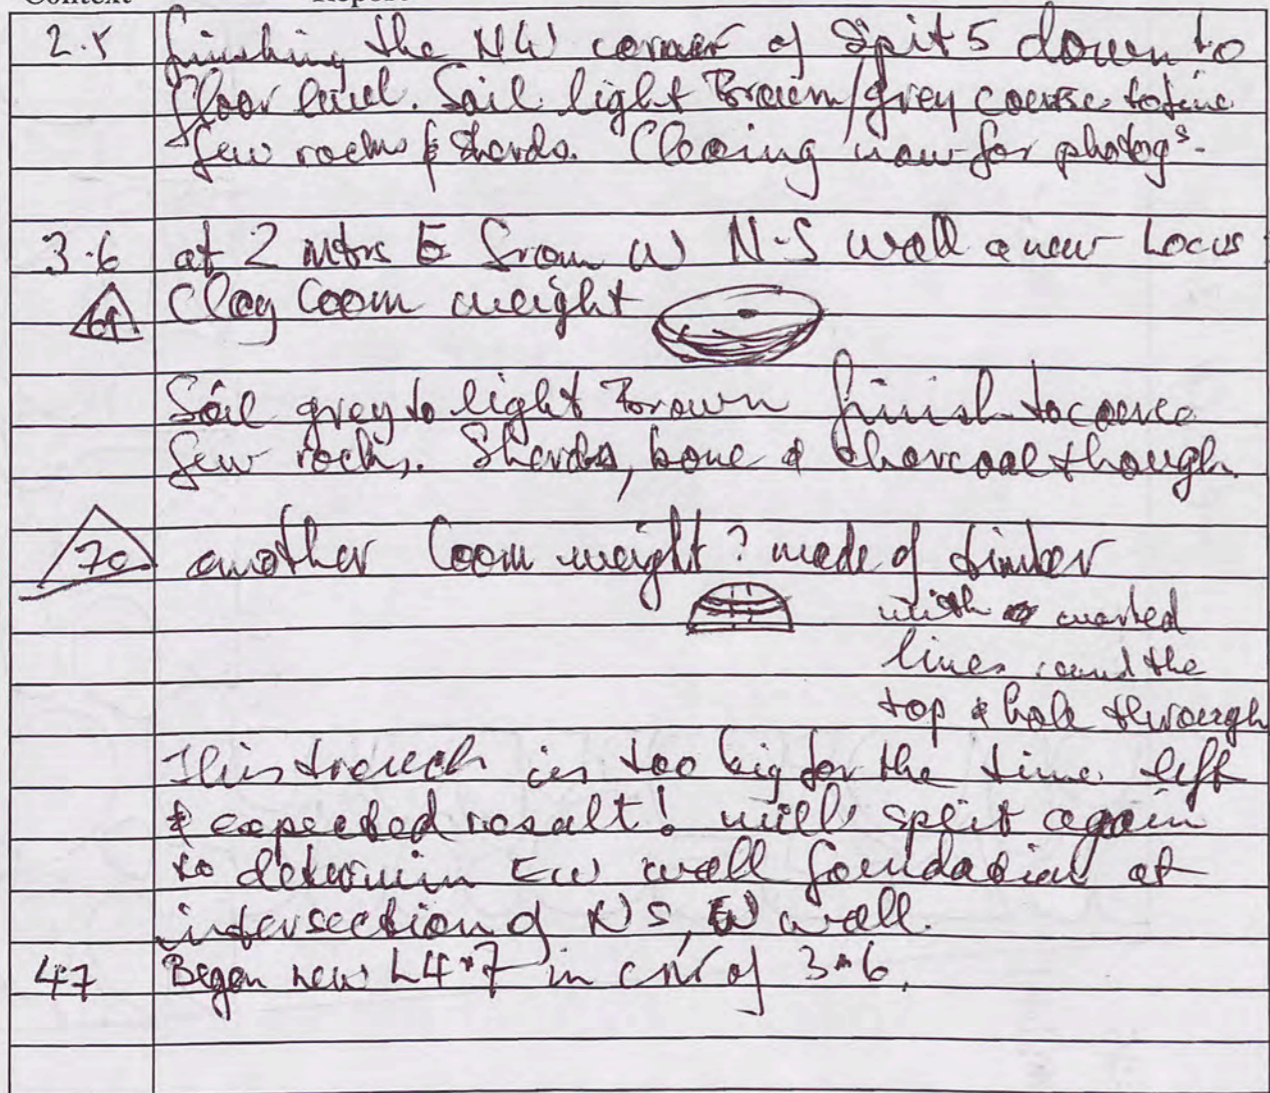 Context Report
2.5 finishing the NW corner of Spit 5 down to
floor level. Soil light Brown/grey coerse to fine
few rocks & Sherds. Cleaing now for photogs.
3.6 at 2 mtrs E from W N-S wall a new Locus
Clay loom weight
Soil grey to light Brown finish to coerce
few rocks. Sherds, bone & charcoal though
70 another loom weight? made of timber
with marked
lines round the
top & hole through
This trench is too big for the time left
& expected result! will split again
to determin EW wall foundation at
intersection of NS, EW wall.
4.7 Began new L4.7 in cnr of 3.6.